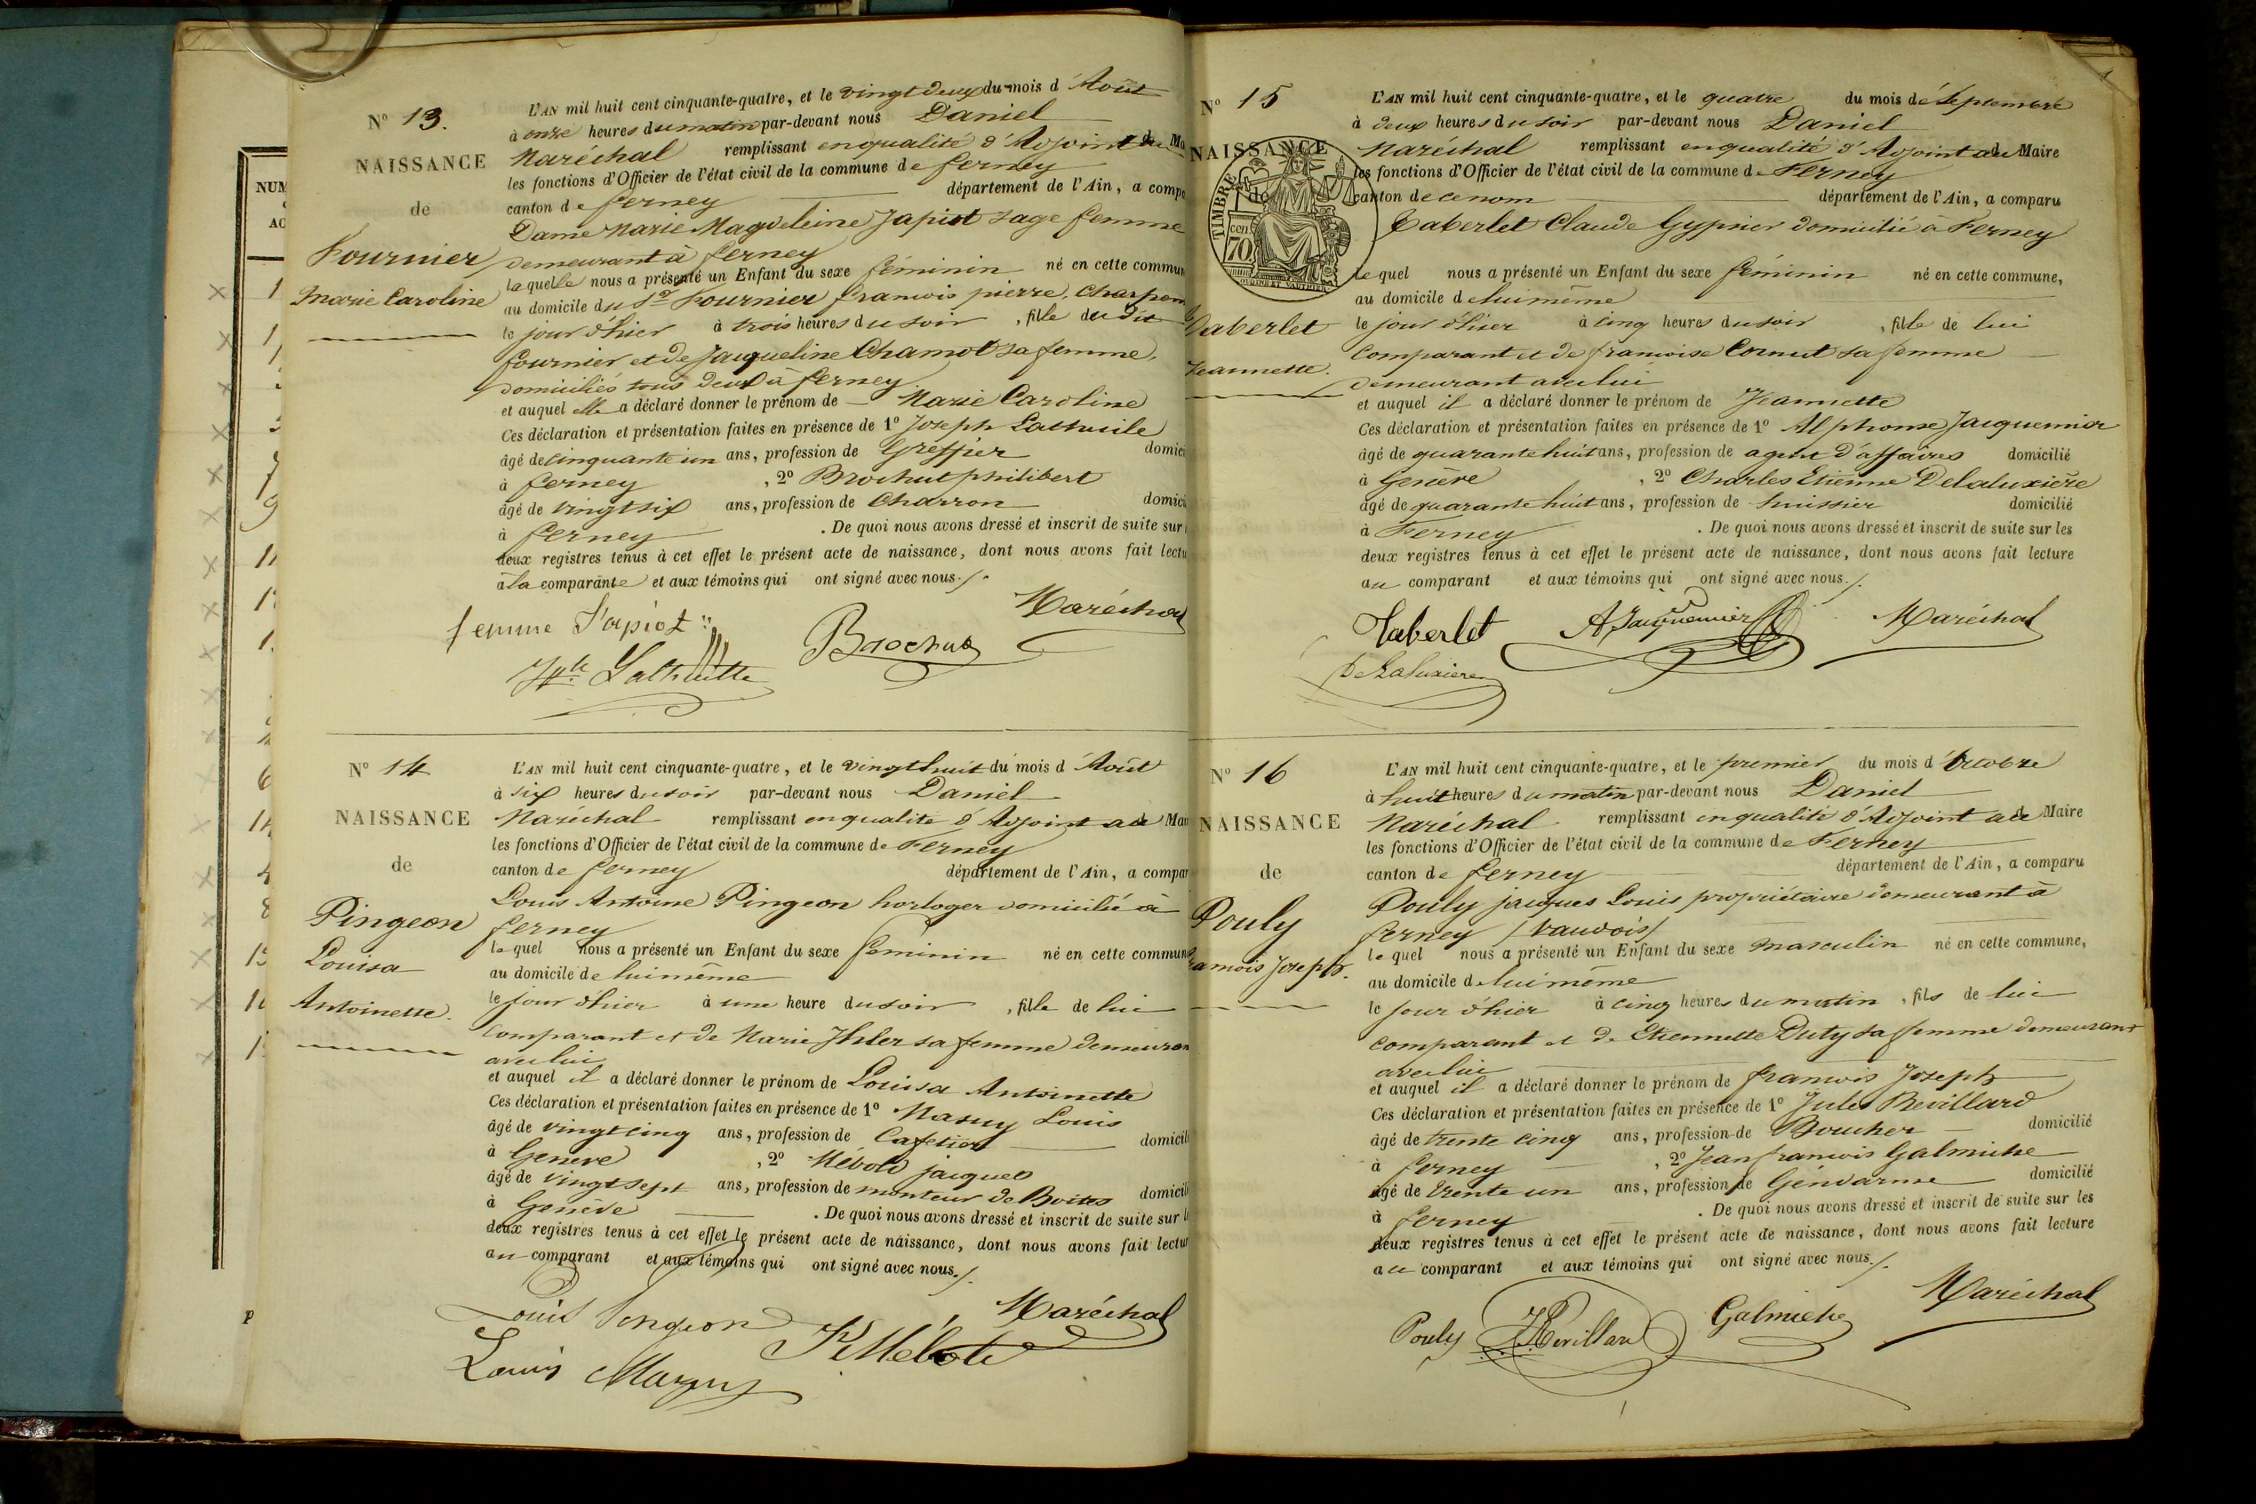 NUM
AC
N° 13.
NAISSANCE
de
Fournier
Marie Caroline
L'AN mil huit cent cinquante-quatre, et le vingt deux du mois d'Août
à onze heures du matin par-devant nous Daniel
Maréchal remplissant en qualité d'Adjoint au Ma
les fonctions d'Officier de l'état civil de la commune de ferney
canton de ferney département de l'Ain, a compa
Dame Marie Magdeleine Japiot sage femme
demeurant à ferney
laquelle nous a présenté un Enfant du sexe féminin né en cette commun
au domicile du Sr Fournier francois pierre, Charpen
le jour d'hier à trois heures du soir, fille du dit
fournier et de Jacqueline Chamot sa femme,
domiciliés tous deux à ferney
et auquel elle a déclaré donner le prénom de Marie Caroline
Ces déclaration et présentation faites en présence de 1° Joseph Lathuile
âgé de cinquante un ans, profession de Greffier domici
à ferney, 2° Brochut philibert
âgé de vingt six ans, profession de Charron domici
à ferney. De quoi nous avons dressé et inscrit de suite sur
deux registres tenus à cet effet le présent acte de naissance, dont nous avons fait lectu
à la comparante et aux témoins qui ont signé avec nous./.
femme Japiot
Maréchal
Brochut
Lathuille
N° 14
NAISSANCE
de
Pingeon
Louisa
Antoinette.
L'AN mil huit cent cinquante-quatre, et le vingt huit du mois d'Août
à six heures du soir par-devant nous Daniel
Maréchal remplissant en qualité d'Adjoint au Mai
les fonctions d'Officier de l'état civil de la commune de Ferney
canton de ferney département de l'Ain, a compar
Louis Antoine Pingeon horloger domicilié à
ferney
lequel nous a présenté un Enfant du sexe féminin né en cette commune
au domicile de lui même
le jour d'hier à une heure du soir, fille de lui
comparant et de Marie Ihler sa femme demeuran
avec lui
et auquel il a déclaré donner le prénom de Louisa Antoinette
Ces déclaration et présentation faites en présence de 1° Masuy Louis
âgé de vingt cinq ans, profession de Cafetier domicili
à Genève, 2° Mébold jacques
âgé de vingt sept ans, profession de monteur de Boites domicili
à Genève. De quoi nous avons dressé et inscrit de suite sur l
deux registres tenus à cet effet le présent acte de naissance, dont nous avons fait lectur
au comparant et aux témoins qui ont signé avec nous./.
Louis Pingeon
Maréchal
Louis
N° 15
NAISSANCE
de
TIMBRE
cen
70
Taberlet
Jeannette.
L'AN mil huit cent cinquante-quatre, et le quatre du mois de Septembre
à deux heures du soir par-devant nous Daniel
Maréchal remplissant en qualité d'Adjoint au Maire
les fonctions d'Officier de l'état civil de la commune de Ferney
canton de ce nom département de l'Ain, a comparu
Taberlet Claude Gypsier domicilié à Ferney
lequel nous a présenté un Enfant du sexe féminin né en cette commune,
au domicile de lui même
le jour d'hier à cinq heures du soir, fille de lui
comparant et de francoise Cornut sa femme
demeurant avec lui
et auquel il a déclaré donner le prénom de Jeannette
Ces déclaration et présentation faites en présence de 1° Alphonse Jacquemier
âgé de quarante huit ans, profession de agent d'affaires domicilié
à Genève, 2° Charles Etienne Delaluxière
âgé de quarante huit ans, profession de huissier domicilié
à Ferney. De quoi nous avons dressé et inscrit de suite sur les
deux registres tenus à cet effet le présent acte de naissance, dont nous avons fait lecture
au comparant et aux témoins qui ont signé avec nous./.
Taberlet
A Jacquemier
Maréchal
DeLaluxiere
N° 16
NAISSANCE
de
Pouly
francois Joseph.
L'AN mil huit cent cinquante-quatre, et le premier du mois d'Octobre
à huit heures du matin par-devant nous Daniel
Maréchal remplissant en qualité d'Adjoint au Maire
les fonctions d'Officier de l'état civil de la commune de Ferney
canton de ferney département de l'Ain, a comparu
Pouly jacques Louis propriétaire demeurant à
ferney (Vaudois)
lequel nous a présenté un Enfant du sexe masculin né en cette commune,
au domicile de lui même
le jour d'hier à cinq heures du matin, fils de lui
comparant et de Etiennette Duty sa femme demeurant
avec lui
et auquel il a déclaré donner le prénom de francois Joseph
Ces déclaration et présentation faites en présence de 1° Jules Revillard
âgé de trente cinq ans, profession de Boucher domicilié
à ferney, 2° Jean francois Galmiche
âgé de trente un ans, profession de Géndarme domicilié
à ferney. De quoi nous avons dressé et inscrit de suite sur les
deux registres tenus à cet effet le présent acte de naissance, dont nous avons fait lecture
au comparant et aux témoins qui ont signé avec nous./.
Pouly
JRevillard
Galmiche
Maréchal